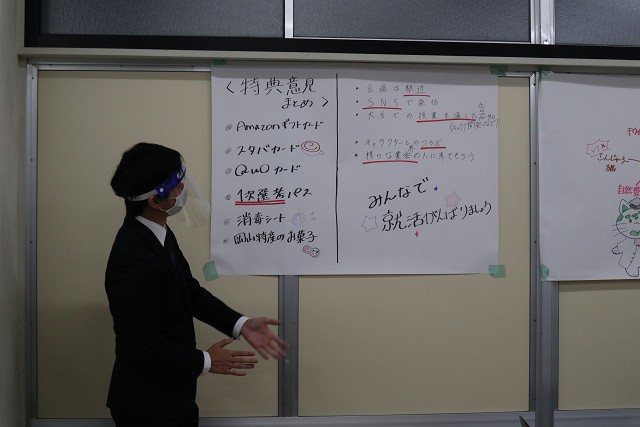 〈特典意見
まとめ〉
Amazonギフトカード
スタバカード
QUOカード
1次選考パス
消毒シート
岡山特産のお菓子
・会場は駅近
・SNSで発信
・大学での授業を通した告知
・キャラクターとのコラボ
・様々な業界の人に来てもらう
みんなで
就活がんばりましょう